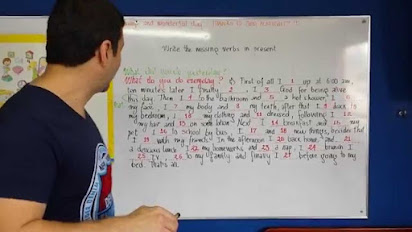 Write the missing verbs in present
What do you do everyday? First of all I 1 up at 6:00 am,
ten minutes later I finally 2, I 3 God for being alive
this day. Then I 4 to the bathroom and 5 a hot shower, I
my face, I 7 my body and 8 my teeth, after that I 9 back to
my bedroom, I 10 my clothing and 11 dressed, following I 12
my hair and 13 on some Next I 14 breakfast and 15 my
I 16 to school by bus, I 17 and 18 new things, besides that
I 19 with my friends. In the afternoon I 20 back home and 21
a delicious lunch. I 22 my homework and 23 a nap, I 24
25 TV, 26 to my family and finally I 27 before going to my
bed. That's all.